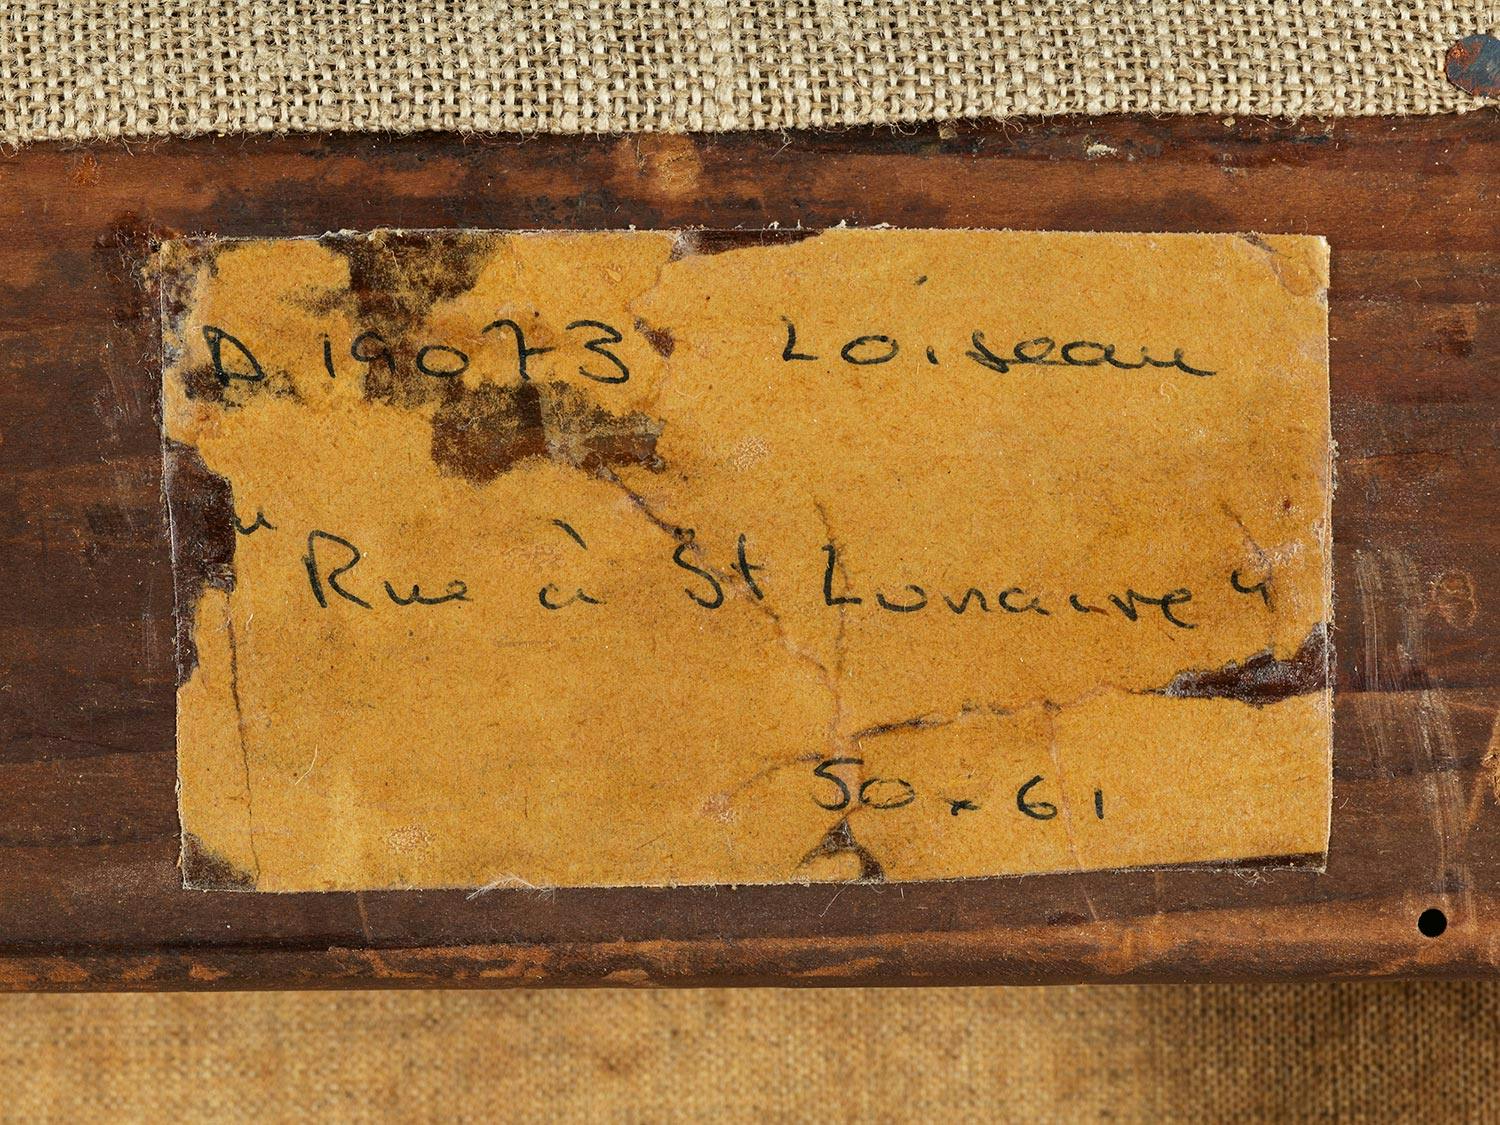 D 19073 Loiseau
"Rue à St Lunaire"
50 x 61